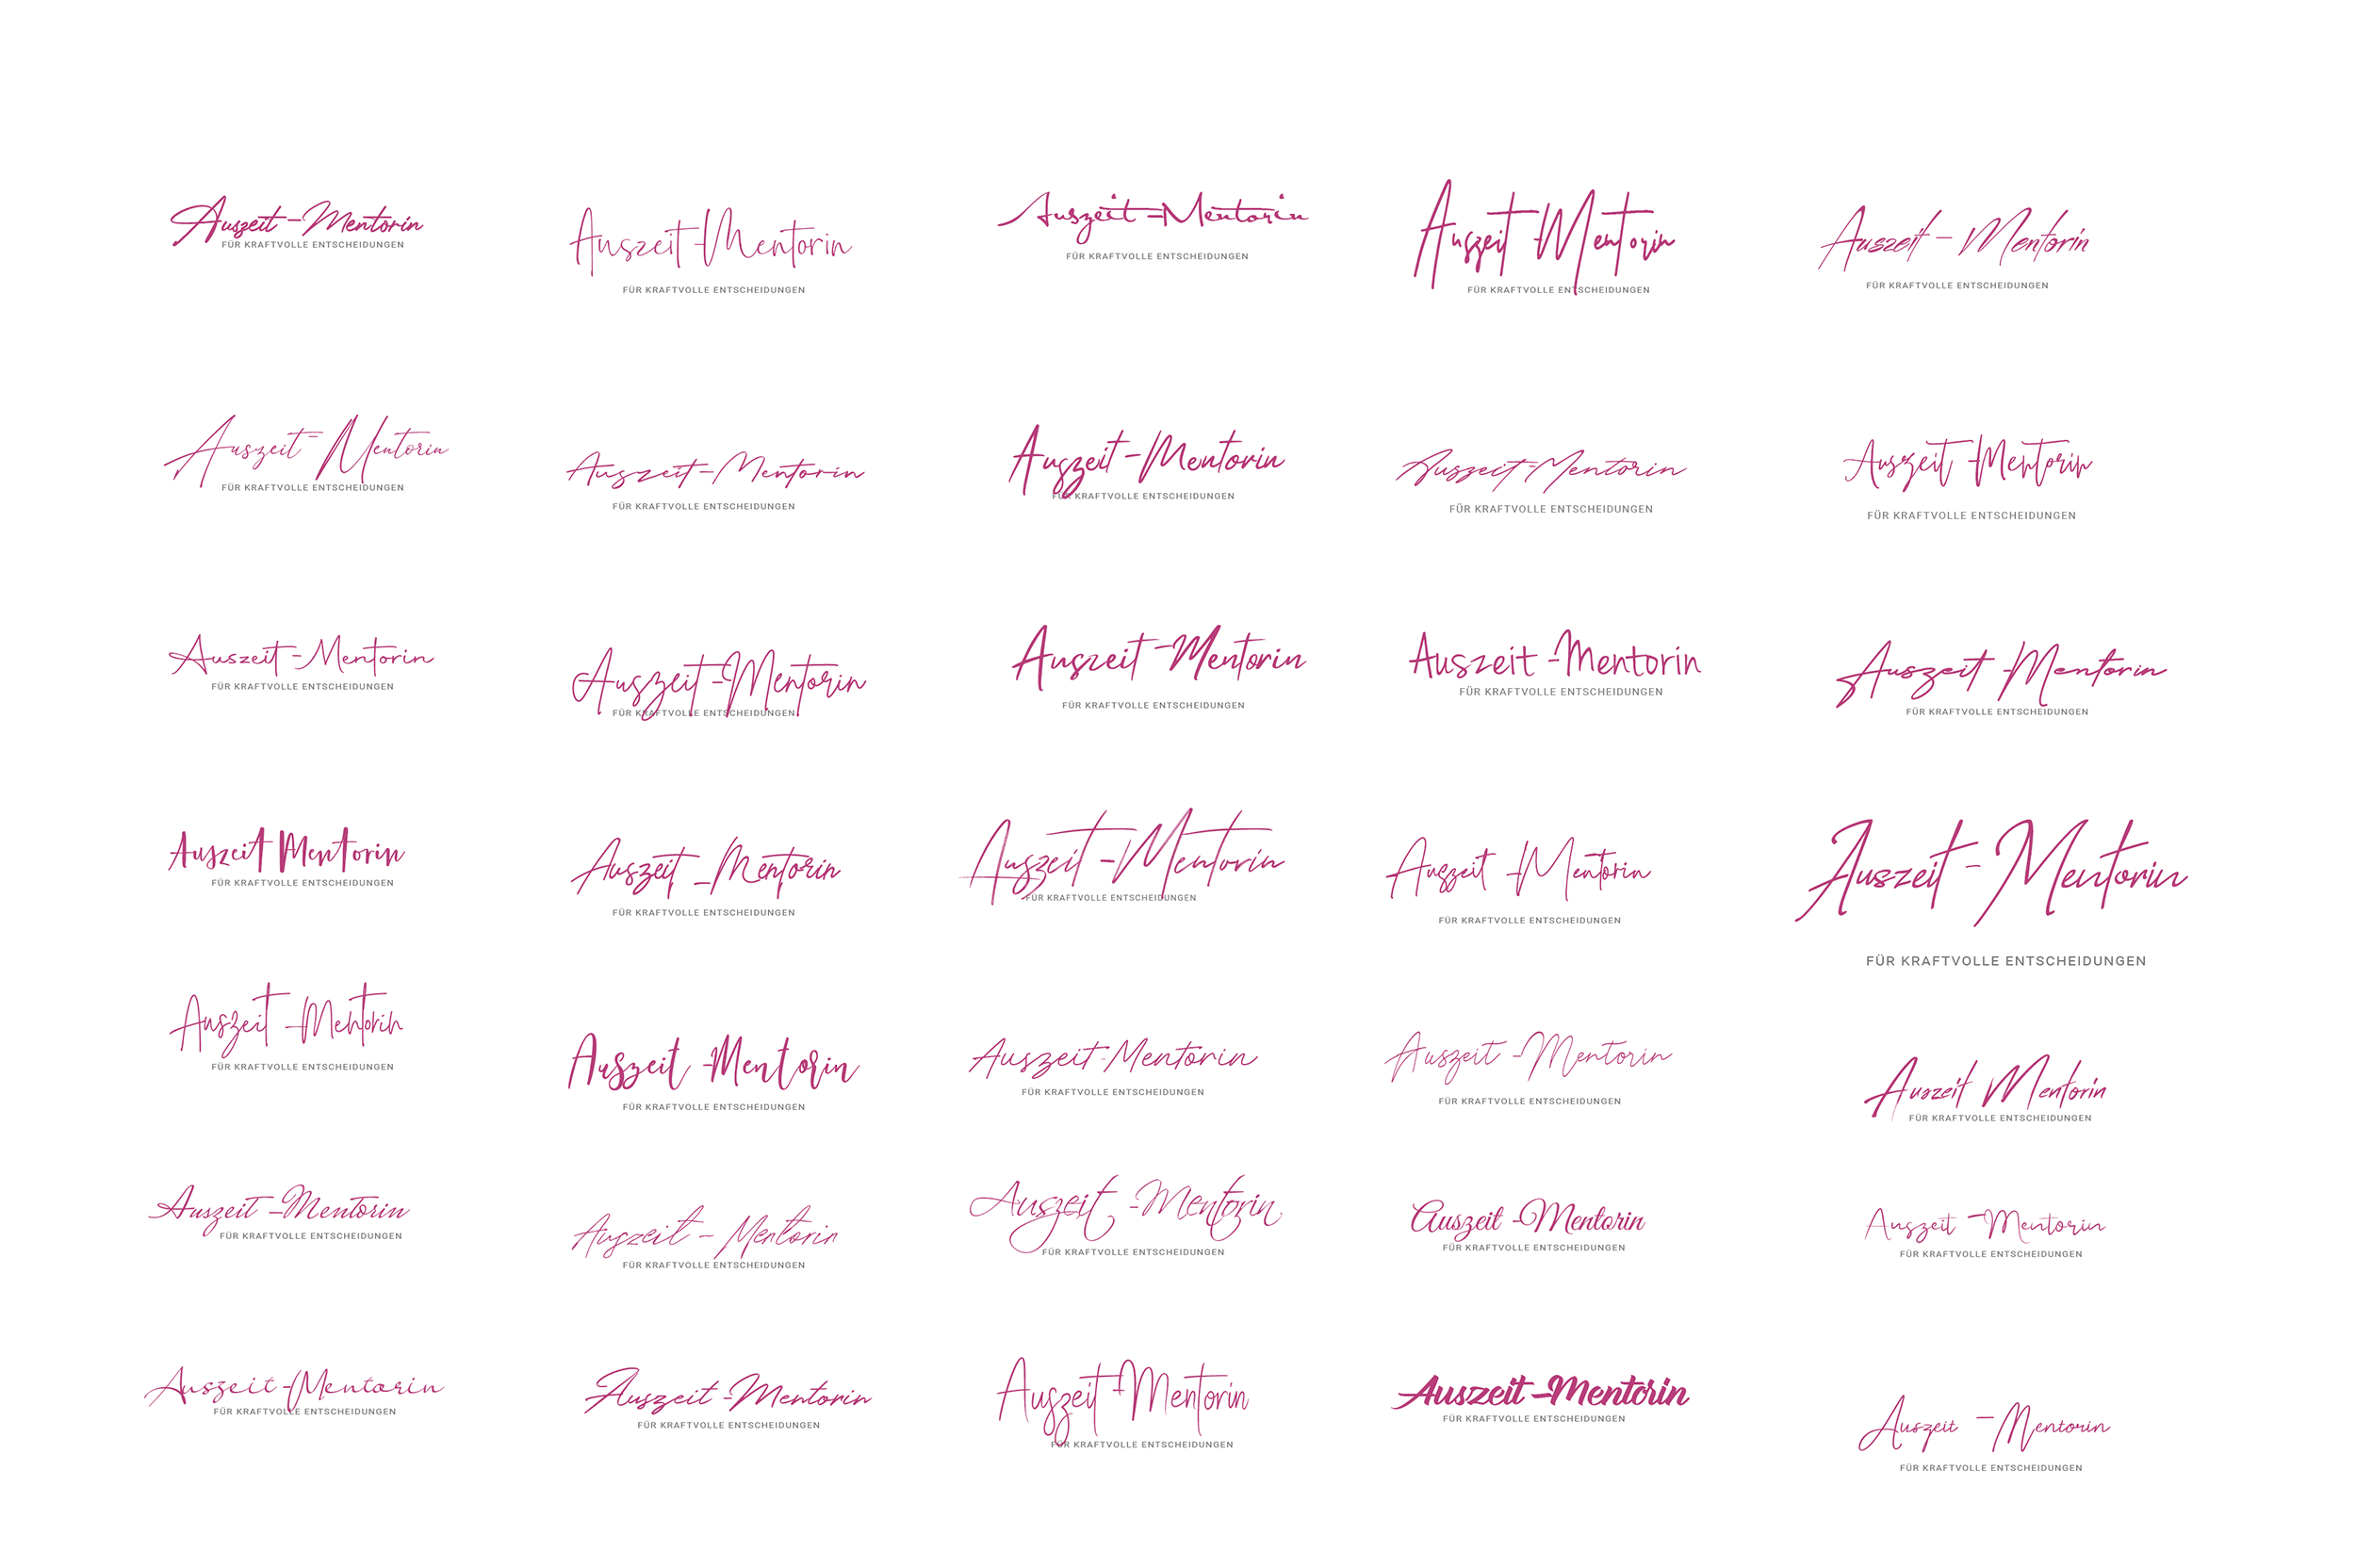 Auszeit-Mentorin
FÜR KRAFTVOLLE ENTSCHEIDUNGEN
Auszeit-Mentorin
FÜR KRAFTVOLLE ENTSCHEIDUNGEN
Auszeit-Mentorin
FÜR KRAFTVOLLE ENTSCHEIDUNGEN
Auszeit-Mentorin
FÜR KRAFTVOLLE ENTSCHEIDUNGEN
Auszeit-Mentorin
FÜR KRAFTVOLLE ENTSCHEIDUNGEN
Auszeit-Mentorin
FÜR KRAFTVOLLE ENTSCHEIDUNGEN
Auszeit-Mentorin
FÜR KRAFTVOLLE ENTSCHEIDUNGEN
Auszeit-Mentorin
FÜR KRAFTVOLLE ENTSCHEIDUNGEN
Auszeit-Mentorin
FÜR KRAFTVOLLE ENTSCHEIDUNGEN
Auszeit-Mentorin
FÜR KRAFTVOLLE ENTSCHEIDUNGEN
Auszeit-Mentorin
FÜR KRAFTVOLLE ENTSCHEIDUNGEN
Auszeit-Mentorin
FÜR KRAFTVOLLE ENTSCHEIDUNGEN
Auszeit-Mentorin
FÜR KRAFTVOLLE ENTSCHEIDUNGEN
Auszeit-Mentorin
FÜR KRAFTVOLLE ENTSCHEIDUNGEN
Auszeit-Mentorin
FÜR KRAFTVOLLE ENTSCHEIDUNGEN
Auszeit Mentorin
FÜR KRAFTVOLLE ENTSCHEIDUNGEN
Auszeit-Mentorin
FÜR KRAFTVOLLE ENTSCHEIDUNGEN
Auszeit-Mentorin
FÜR KRAFTVOLLE ENTSCHEIDUNGEN
Auszeit-Mentorin
FÜR KRAFTVOLLE ENTSCHEIDUNGEN
Auszeit-Mentorin
FÜR KRAFTVOLLE ENTSCHEIDUNGEN
Auszeit-Mentorin
FÜR KRAFTVOLLE ENTSCHEIDUNGEN
Auszeit-Mentorin
FÜR KRAFTVOLLE ENTSCHEIDUNGEN
Auszeit-Mentorin
FÜR KRAFTVOLLE ENTSCHEIDUNGEN
Auszeit-Mentorin
FÜR KRAFTVOLLE ENTSCHEIDUNGEN
Auszeit Mentorin
FÜR KRAFTVOLLE ENTSCHEIDUNGEN
Auszeit-Mentorin
FÜR KRAFTVOLLE ENTSCHEIDUNGEN
Auszeit-Mentorin
FÜR KRAFTVOLLE ENTSCHEIDUNGEN
Auszeit-Mentorin
FÜR KRAFTVOLLE ENTSCHEIDUNGEN
Auszeit-Mentorin
FÜR KRAFTVOLLE ENTSCHEIDUNGEN
Auszeit-Mentorin
FÜR KRAFTVOLLE ENTSCHEIDUNGEN
Auszeit-Mentorin
FÜR KRAFTVOLLE ENTSCHEIDUNGEN
Auszeit-Mentorin
FÜR KRAFTVOLLE ENTSCHEIDUNGEN
Auszeit-Mentorin
FÜR KRAFTVOLLE ENTSCHEIDUNGEN
Auszeit-Mentorin
FÜR KRAFTVOLLE ENTSCHEIDUNGEN
Auszeit-Mentorin
FÜR KRAFTVOLLE ENTSCHEIDUNGEN